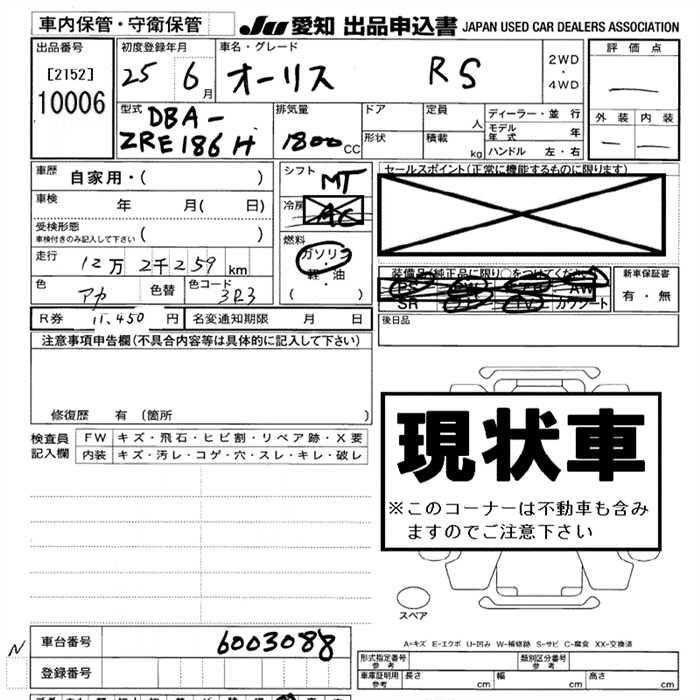 車内保管・守衛保管
JU 愛知 出品申込書 JAPAN USED CAR DEALERS ASSOCIATION
出品番号
[2152]
10006
初度登録年月
25 6月
車名・グレード
オーリス RS
2WD
・
4WD
評価点
外装 内装
型式
DBA-
ZRE186H
排気量
1800cc
ドア
形状
定員 人
積載 kg
ディーラー・並行
モデル年式 年
ハンドル 左・右
車歴 自家用・( )
車検 年 月( 日)
受検形態
車検付きのみ記入して下さい ( )
走行 12万2千259km
色 アカ 色替 色コード 3R3
シフト MT
冷房 AC
燃料
ガソリン
・
軽・油
( )
セールスポイント(正常に機能するものに限ります)
装備品(純正品に限り○をつけてください)
PS PW AW
SR TV カワシート
新車保証書
有・無
R券 11,450円 名変通知期限 月 日
後日品
注意事項申告欄(不具合内容等は具体的に記入して下さい)
修復歴 有(箇所 )
検査員記入欄
FW キズ・飛石・ヒビ割・リペア跡・X要
内装 キズ・汚レ・コゲ・穴・スレ・キレ・破レ
現状車
※このコーナーは不動車も含み
ますのでご注意下さい
スペア
A-キズ E-エクボ U-凹み W-補修跡 S-サビ C-腐食 XX-交換済
N
車台番号 6003088
登録番号
形式指定番号
参考
類別区分番号
参考
車庫証明用
参考
長さ cm 幅 cm 高さ cm